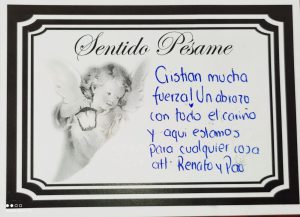 Sentido Pésame
Gistian mucha
fuerza! Un abrazo
con todo el cariño
y aqui estamos
para cualquier cosa
att. Renato y Pao